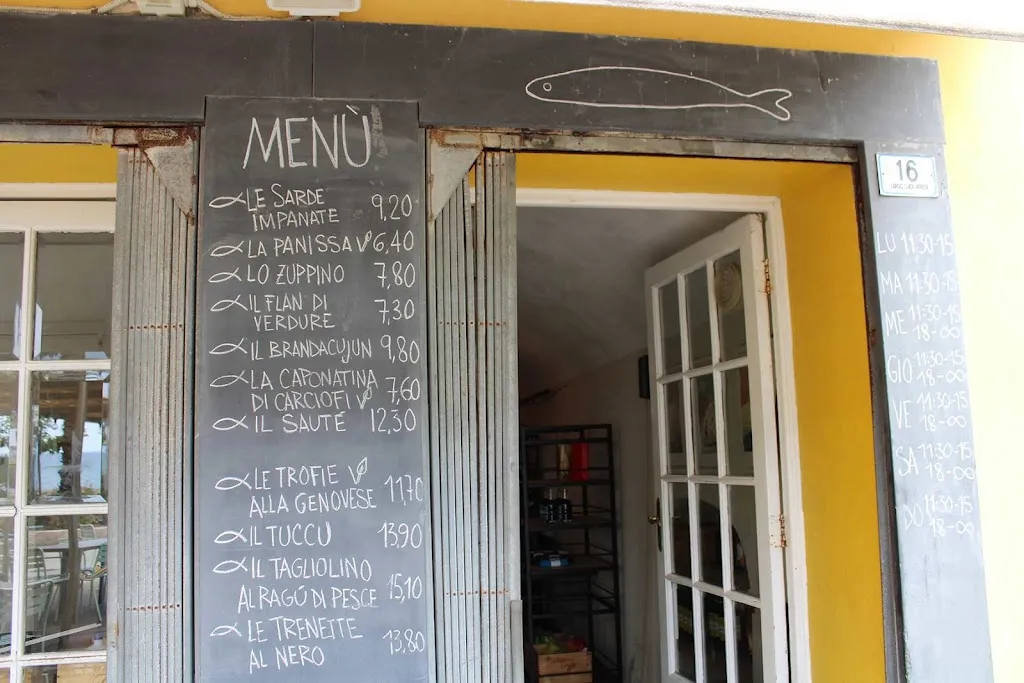 MENÙ
LE SARDE
IMPANATE 9,20
LA PANISSA 6,40
LO ZUPPINO 7,80
IL FLAN DI
VERDURE 7,30
IL BRANDACUJUN 9,80
LA CAPONATINA
DI CARCIOFI 7,60
IL SAUTÉ 12,30
LE TROFIE
ALLA GENOVESE 11,70
IL TUCCU 13,90
IL TAGLIOLINO
AL RAGÚ DI PESCE 15,10
LE TRENETTE
AL NERO 13,80
16
LU 11:30-15
MA 11:30-15
ME 11:30-15
18-00
GIO 11:30-15
18-00
VE 11:30-15
18-00
SA 11:30-15
18-00
DO 11:30-15
18-00